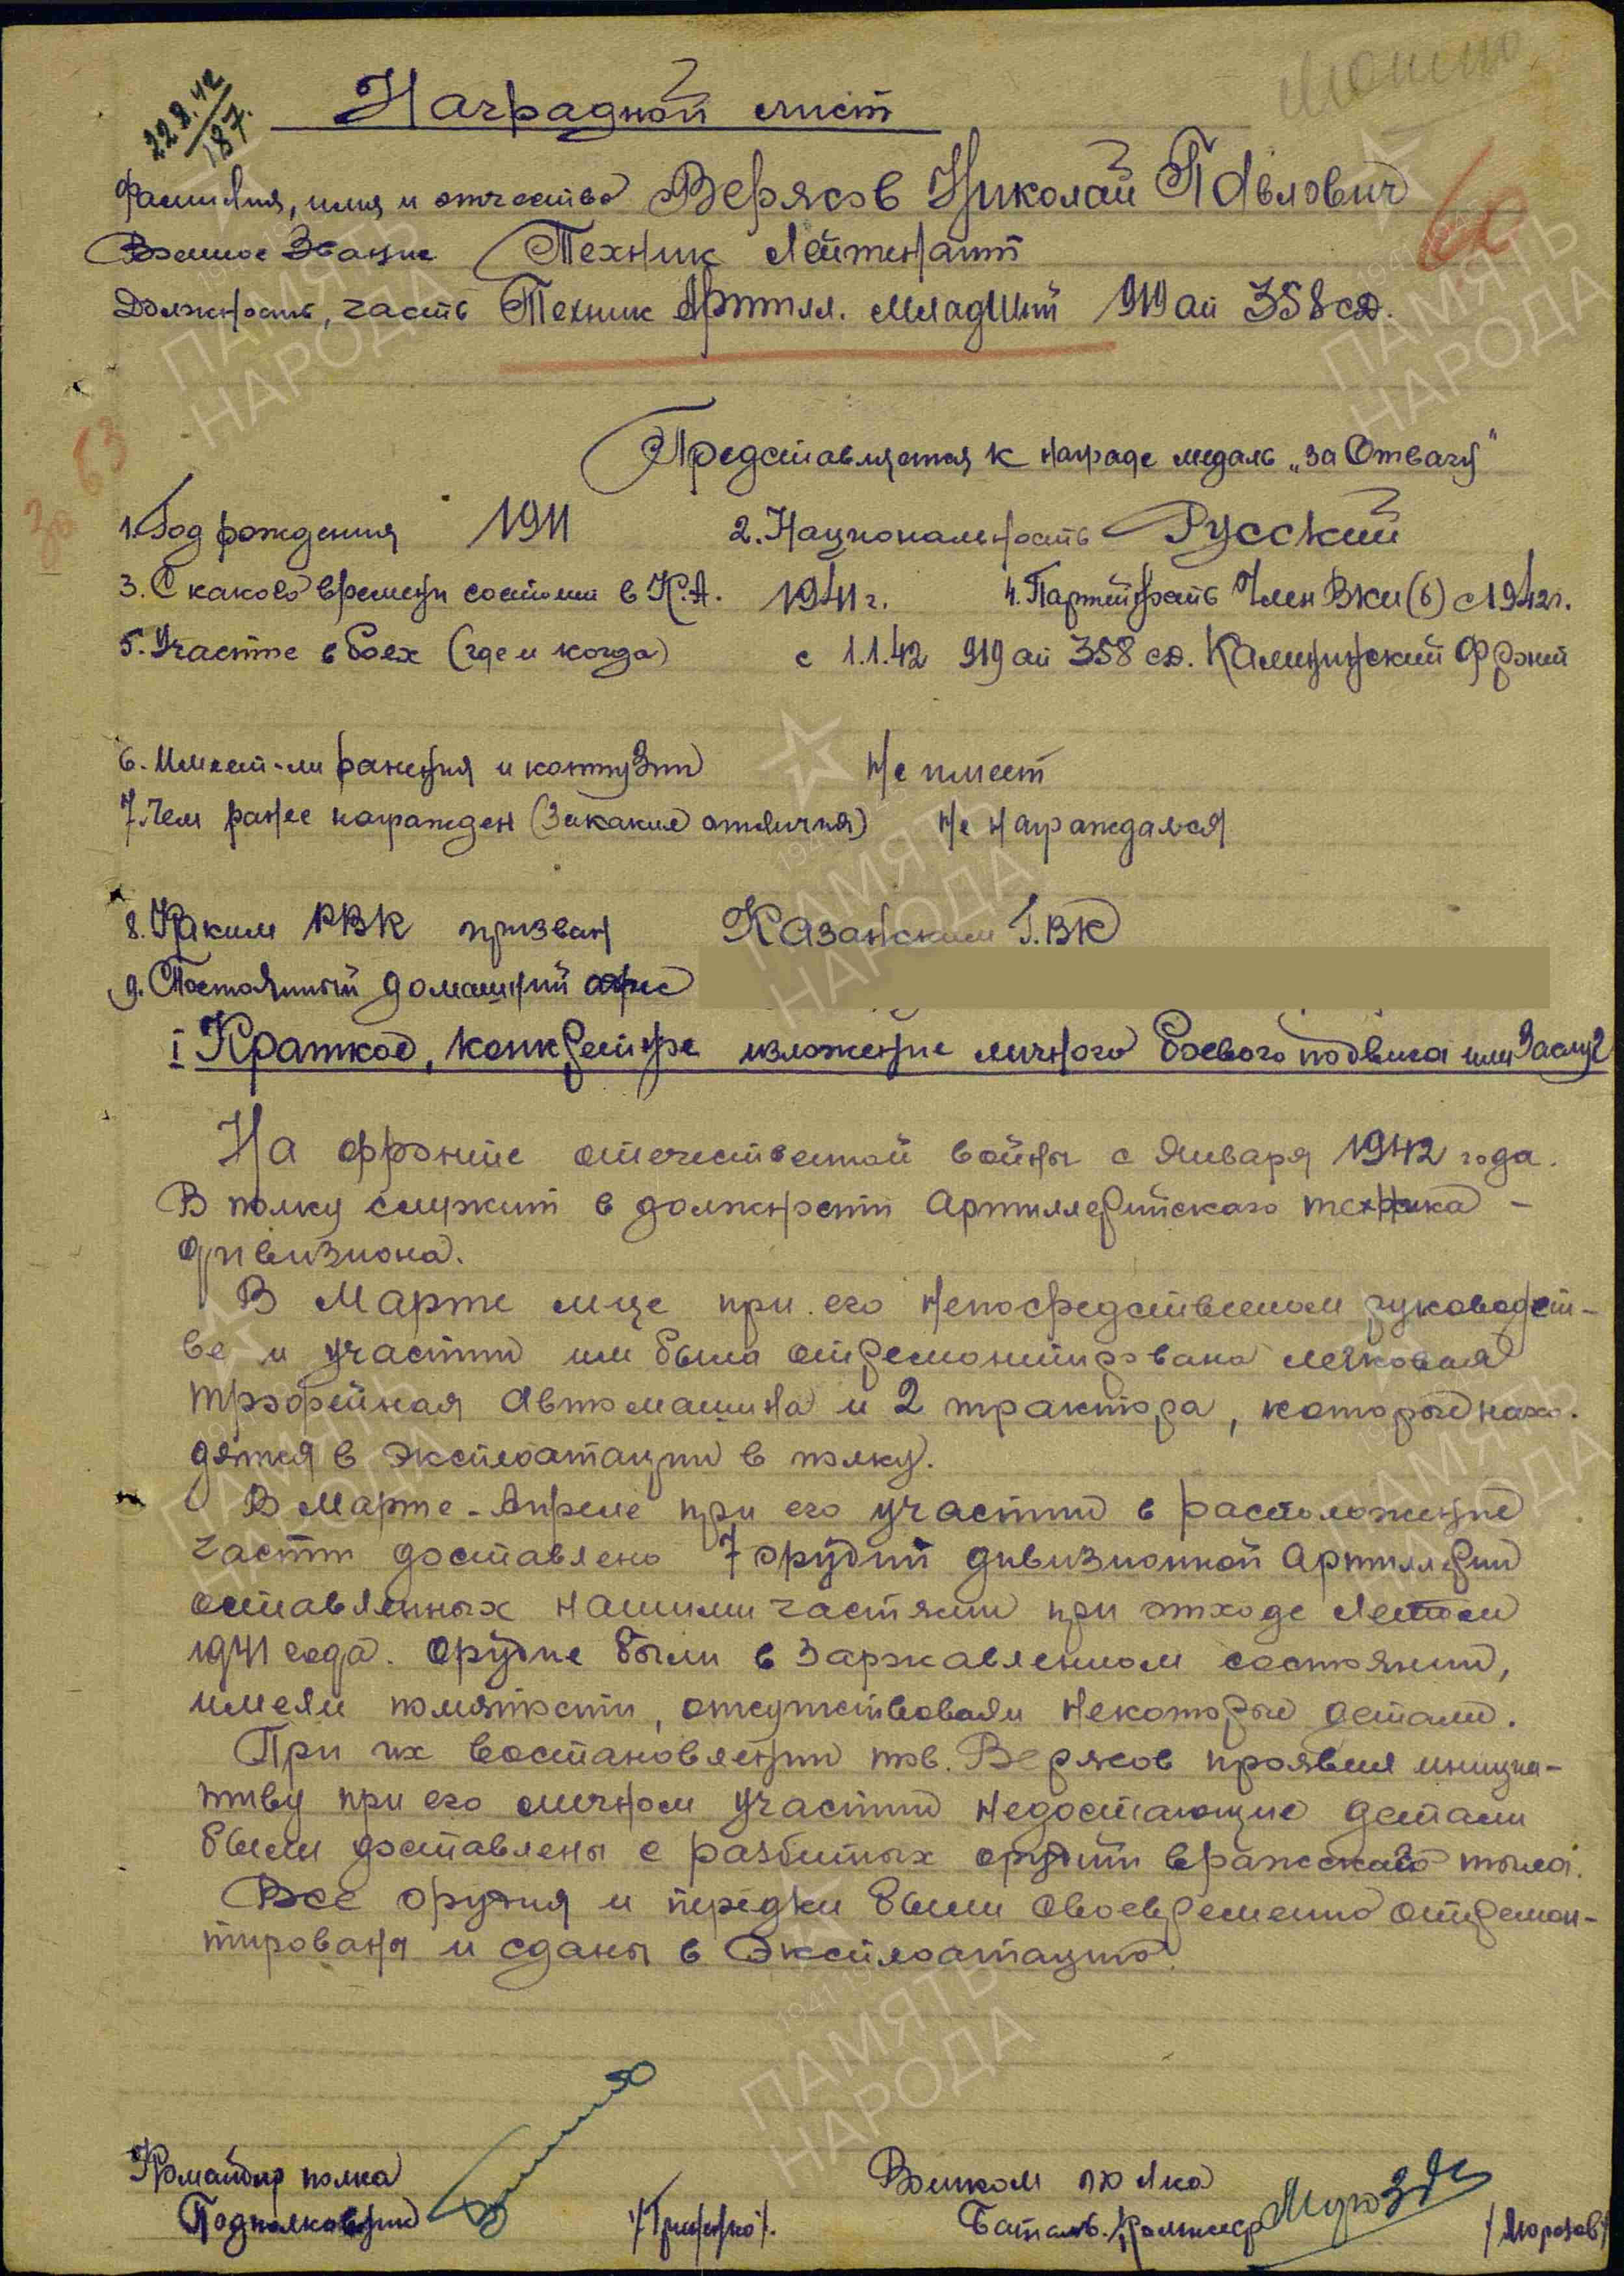 228.42
187.
Наградной лист
60
Фамилия, имя и отчество Верясов Николай Павлович
Военное звание Техник Лейтенант
Должность, часть Техник Артилл. младший 919 ап 358 сд.
63
За
Представляется к награде медаль „за Отвагу"
1. Год рождения 1911 2. Национальность Русский
3. С каково времени состоит в К.А. 1941 г. 4. Партийность Член Вкп(б) с 1942г.
5. Участие в боях (где и когда) с 1.1.42 919 ап 358 сд. Калининский Фронт
6. Имеет-ли ранения и контузии Не имеет
7. Чем ранее награжден (За какие отличия) Не награждался
8. Каким РВК призван Казанским Г.ВК
9. Постоянный домашний адрес
I Краткое, конкретное изложение личного боевого подвига или Заслуг
На фронте отечественной войны с Января 1942 года.
В полку служит в должности Артиллерийского техника -
дивизиона.
В Марте м-це при его непосредственном руководст-
ве и участии им была отремонтирована легковая
трофейная Автомашина и 2 трактора, которые нахо-
дятся в эксплоатации в полку.
В Марте-Апреле при его участии в расположение
части доставлено 7 орудий дивизионной Артиллерии
оставленных нашими частями при отходе Летом
1941 года. Орудие были в Заржавленном состоянии,
имели помятости, отсутствовали некоторые детали.
При их востановлении тов. Верясов проявил инициа-
тиву при его личном участии недостающие детали
были доставлены с разбитых орудий вражеского тыла.
Все орудия и передки были своевременно отремон-
тированы и сданы в Эксплоатацию.
Командир полка Военком полка
Подполковник Батальон. Комиссар /Морозов/